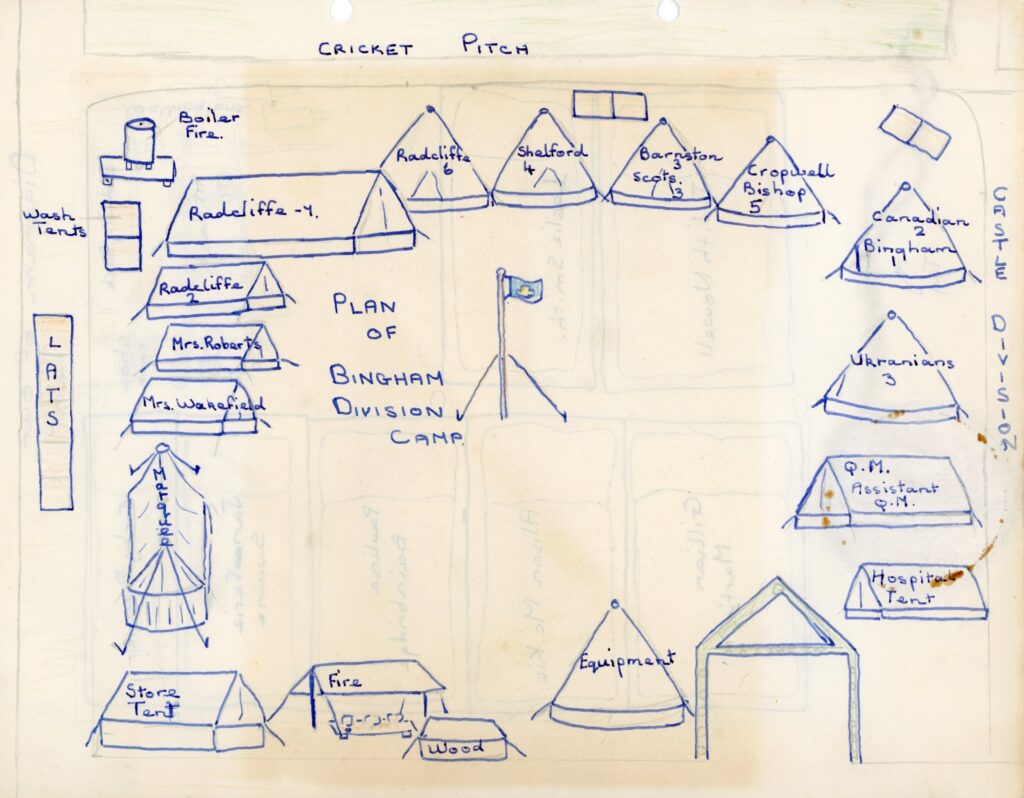 CRICKET PITCH
Boiler
Fire.
Wash
Tents
Radcliffe -4.
Radcliffe
6
Shelford
4
Barnston
3
Scots.
3
Cropwell
Bishop
5
Canadian
2
Bingham
1
CASTLE DIVISION
Radcliffe
2
Mrs. Roberts
Mrs. Wakefield
LATS
PLAN
OF
BINGHAM
DIVISION
CAMP.
Ukranians
3
Q.M.
Assistant
Q.M.
Hospital
Tent
Marquee
Equipment
Store
Tent
Fire
Wood